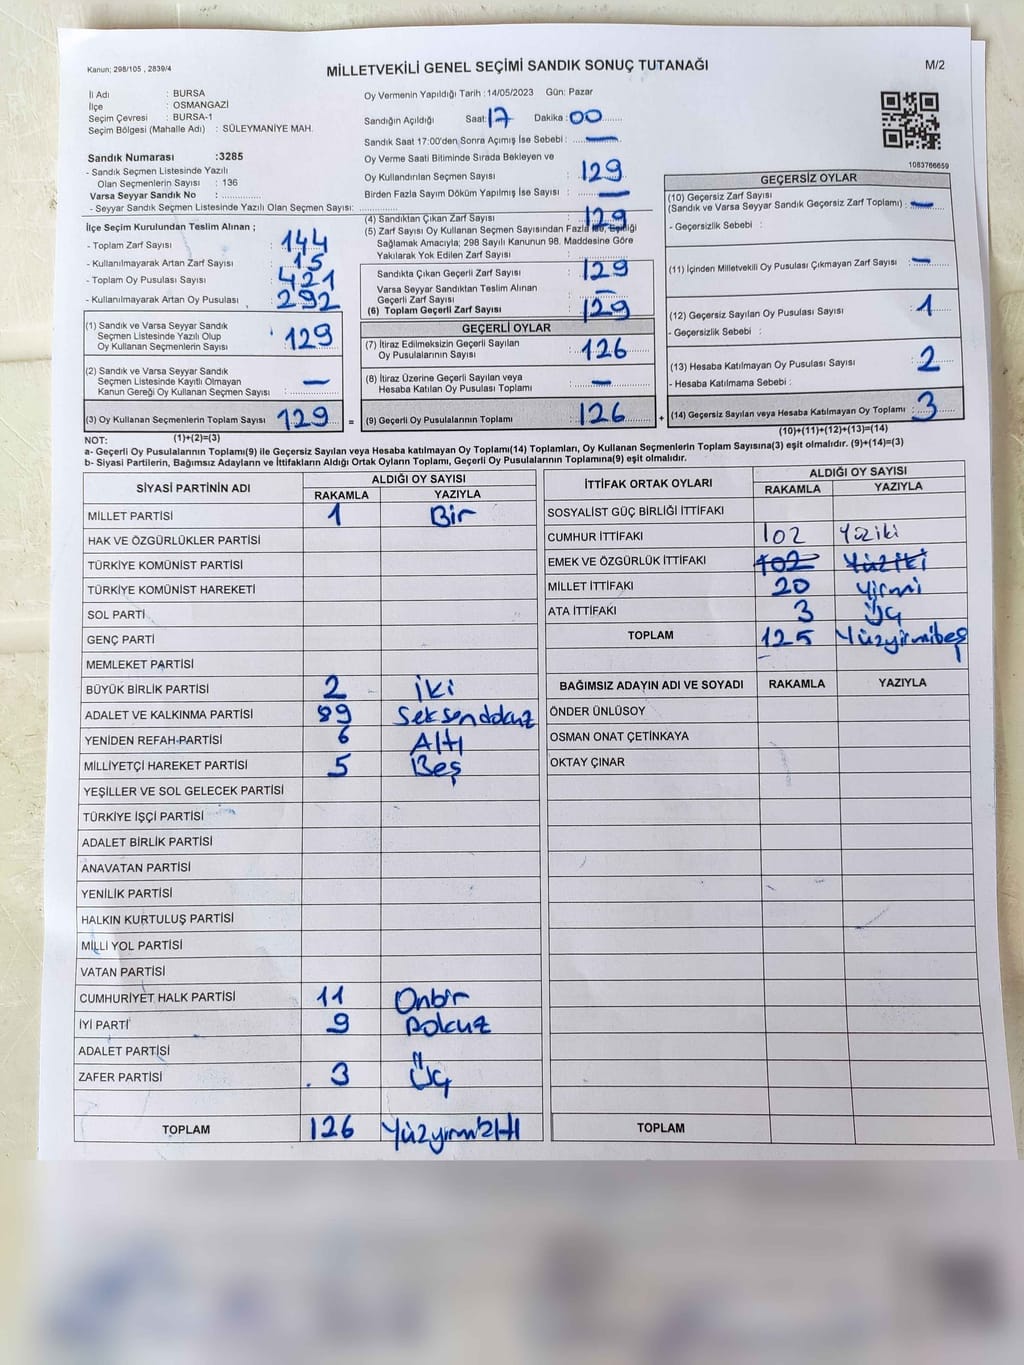 Kanun; 298/105 , 2839/4
MİLLETVEKİLİ GENEL SEÇİMİ SANDIK SONUÇ TUTANAĞI
M/2
İl Adı : BURSA
İlçe : OSMANGAZİ
Seçim Çevresi : BURSA-1
Seçim Bölgesi (Mahalle Adı) : SÜLEYMANİYE MAH.
Sandık Numarası :3285
- Sandık Seçmen Listesinde Yazılı
Olan Seçmenlerin Sayısı : 136
Varsa Seyyar Sandık No :
- Seyyar Sandık Listesinde Yazılı Olan Seçmen Sayısı:
Oy Vermenin Yapıldığı Tarih :14/05/2023 Gün: Pazar
Sandığın Açıldığı Saat: 17 Dakika: 00
Sandık Saat 17:00'den Sonra Açımış İse Sebebi : —
Oy Verme Saati Bitiminde Sırada Bekleyen ve
Oy Kullandırılan Seçmen Sayısı : 129
Birden Fazla Sayım Döküm Yapılmış İse Sayısı : —
1083766659
İlçe Seçim Kurulundan Teslim Alınan ;
- Toplam Zarf Sayısı : 144
- Kullanılmayarak Artan Zarf Sayısı : 15
- Toplam Oy Pusulası Sayısı : 421
- Kullanılmayarak Artan Oy Pusulası : 292
(1) Sandık ve Varsa Seyyar Sandık
Seçmen Listesinde Yazılı Olup
Oy Kullanan Seçmenlerin Sayısı : 129
(2) Sandık ve Varsa Seyyar Sandık
Seçmen Listesinde Kayıtlı Olmayan
Kanun Gereği Oy Kullanan Seçmen Sayısı : —
(3) Oy Kullanan Seçmenlerin Toplam Sayısı : 129 =
(4) Sandıktan Çıkan Zarf Sayısı : 129
(5) Zarf Sayısı Oy Kullanan Seçmen Sayısından Fazla İse, Eşitliği
Sağlamak Amacıyla; 298 Sayılı Kanunun 98. Maddesine Göre
Yakılarak Yok Edilen Zarf Sayısı :
Sandıkta Çıkan Geçerli Zarf Sayısı : 129
Varsa Seyyar Sandıktan Teslim Alınan
Geçerli Zarf Sayısı : —
(6) Toplam Geçerli Zarf Sayısı : 129
GEÇERLİ OYLAR
(7) İtiraz Edilmeksizin Geçerli Sayılan
Oy Pusulalarının Sayısı : 126
(8) İtiraz Üzerine Geçerli Sayılan veya
Hesaba Katılan Oy Pusulası Toplamı : —
(9) Geçerli Oy Pusulalarının Toplamı : 126 +
GEÇERSİZ OYLAR
(10) Geçersiz Zarf Sayısı
(Sandık ve Varsa Seyyar Sandık Geçersiz Zarf Toplamı) : —
- Geçersizlik Sebebi :
(11) İçinden Milletvekili Oy Pusulası Çıkmayan Zarf Sayısı : —
(12) Geçersiz Sayılan Oy Pusulası Sayısı : 1
- Geçersizlik Sebebi :
(13) Hesaba Katılmayan Oy Pusulası Sayısı : 2
- Hesaba Katılmama Sebebi :
(14) Geçersiz Sayılan veya Hesaba Katılmayan Oy Toplamı : 3
NOT: (1)+(2)=(3)
(10)+(11)+(12)+(13)=(14)
a- Geçerli Oy Pusulalarının Toplamı(9) ile Geçersiz Sayılan veya Hesaba katılmayan Oy Toplamı(14) Toplamları, Oy Kullanan Seçmenlerin Toplam Sayısına(3) eşit olmalıdır. (9)+(14)=(3)
b- Siyasi Partilerin, Bağımsız Adayların ve İttifakların Aldığı Ortak Oyların Toplamı, Geçerli Oy Pusulalarının Toplamına(9) eşit olmalıdır.
SİYASİ PARTİNİN ADI ALDIĞI OY SAYISI
RAKAMLA YAZIYLA
MİLLET PARTİSİ 1 Bir
HAK VE ÖZGÜRLÜKLER PARTİSİ
TÜRKİYE KOMÜNİST PARTİSİ
TÜRKİYE KOMÜNİST HAREKETİ
SOL PARTİ
GENÇ PARTİ
MEMLEKET PARTİSİ
BÜYÜK BİRLİK PARTİSİ 2 iki
ADALET VE KALKINMA PARTİSİ 89 Seksendokuz
YENİDEN REFAH PARTİSİ 6 Altı
MİLLİYETÇİ HAREKET PARTİSİ 5 Beş
YEŞİLLER VE SOL GELECEK PARTİSİ
TÜRKİYE İŞÇİ PARTİSİ
ADALET BİRLİK PARTİSİ
ANAVATAN PARTİSİ
YENİLİK PARTİSİ
HALKIN KURTULUŞ PARTİSİ
MİLLİ YOL PARTİSİ
VATAN PARTİSİ
CUMHURİYET HALK PARTİSİ 11 Onbir
İYİ PARTİ 9 Dokuz
ADALET PARTİSİ
ZAFER PARTİSİ 3 Üç
TOPLAM 126 Yüzyirmialtı
İTTİFAK ORTAK OYLARI ALDIĞI OY SAYISI
RAKAMLA YAZIYLA
SOSYALİST GÜÇ BİRLİĞİ İTTİFAKI
CUMHUR İTTİFAKI 102 Yüziki
EMEK VE ÖZGÜRLÜK İTTİFAKI 102 Yüziki
MİLLET İTTİFAKI 20 Yirmi
ATA İTTİFAKI 3 Üç
TOPLAM 125 Yüzyirmibeş
BAĞIMSIZ ADAYIN ADI VE SOYADI RAKAMLA YAZIYLA
ÖNDER ÜNLÜSOY
OSMAN ONAT ÇETİNKAYA
OKTAY ÇINAR
TOPLAM